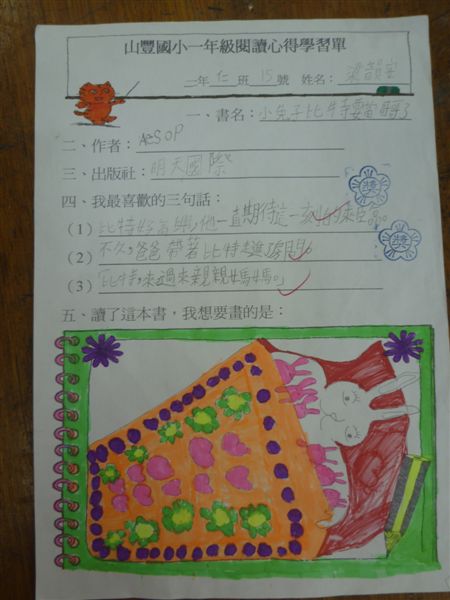 山豐國小一年級閱讀心得學習單
一年 仁 班 15 號 姓名：
一、書名：小兔子比特要當哥哥了
二、作者：AESOP
三、出版社：明天國際
四、我最喜歡的三句話：
獎
(1) 比特好高興，他一直期待這一刻的來臨。
獎
(2) 不久，爸爸帶著比特進房間。
(3) 「比特，來過來親親媽媽。」
五、讀了這本書，我想要畫的是：